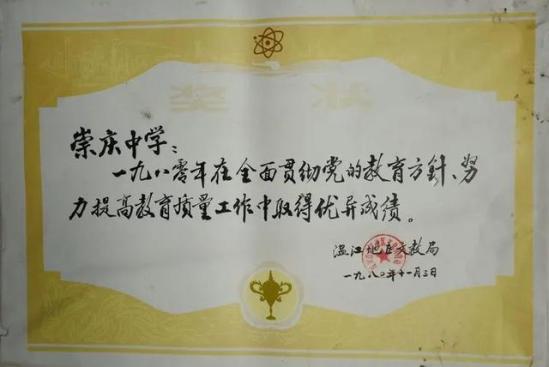 奖状
崇庆中学：
一九八零年在全面贯彻党的教育方針、努
力提高教育质量工作中取得优异成绩。
温江地区文教局
一九八〇年十一月三日